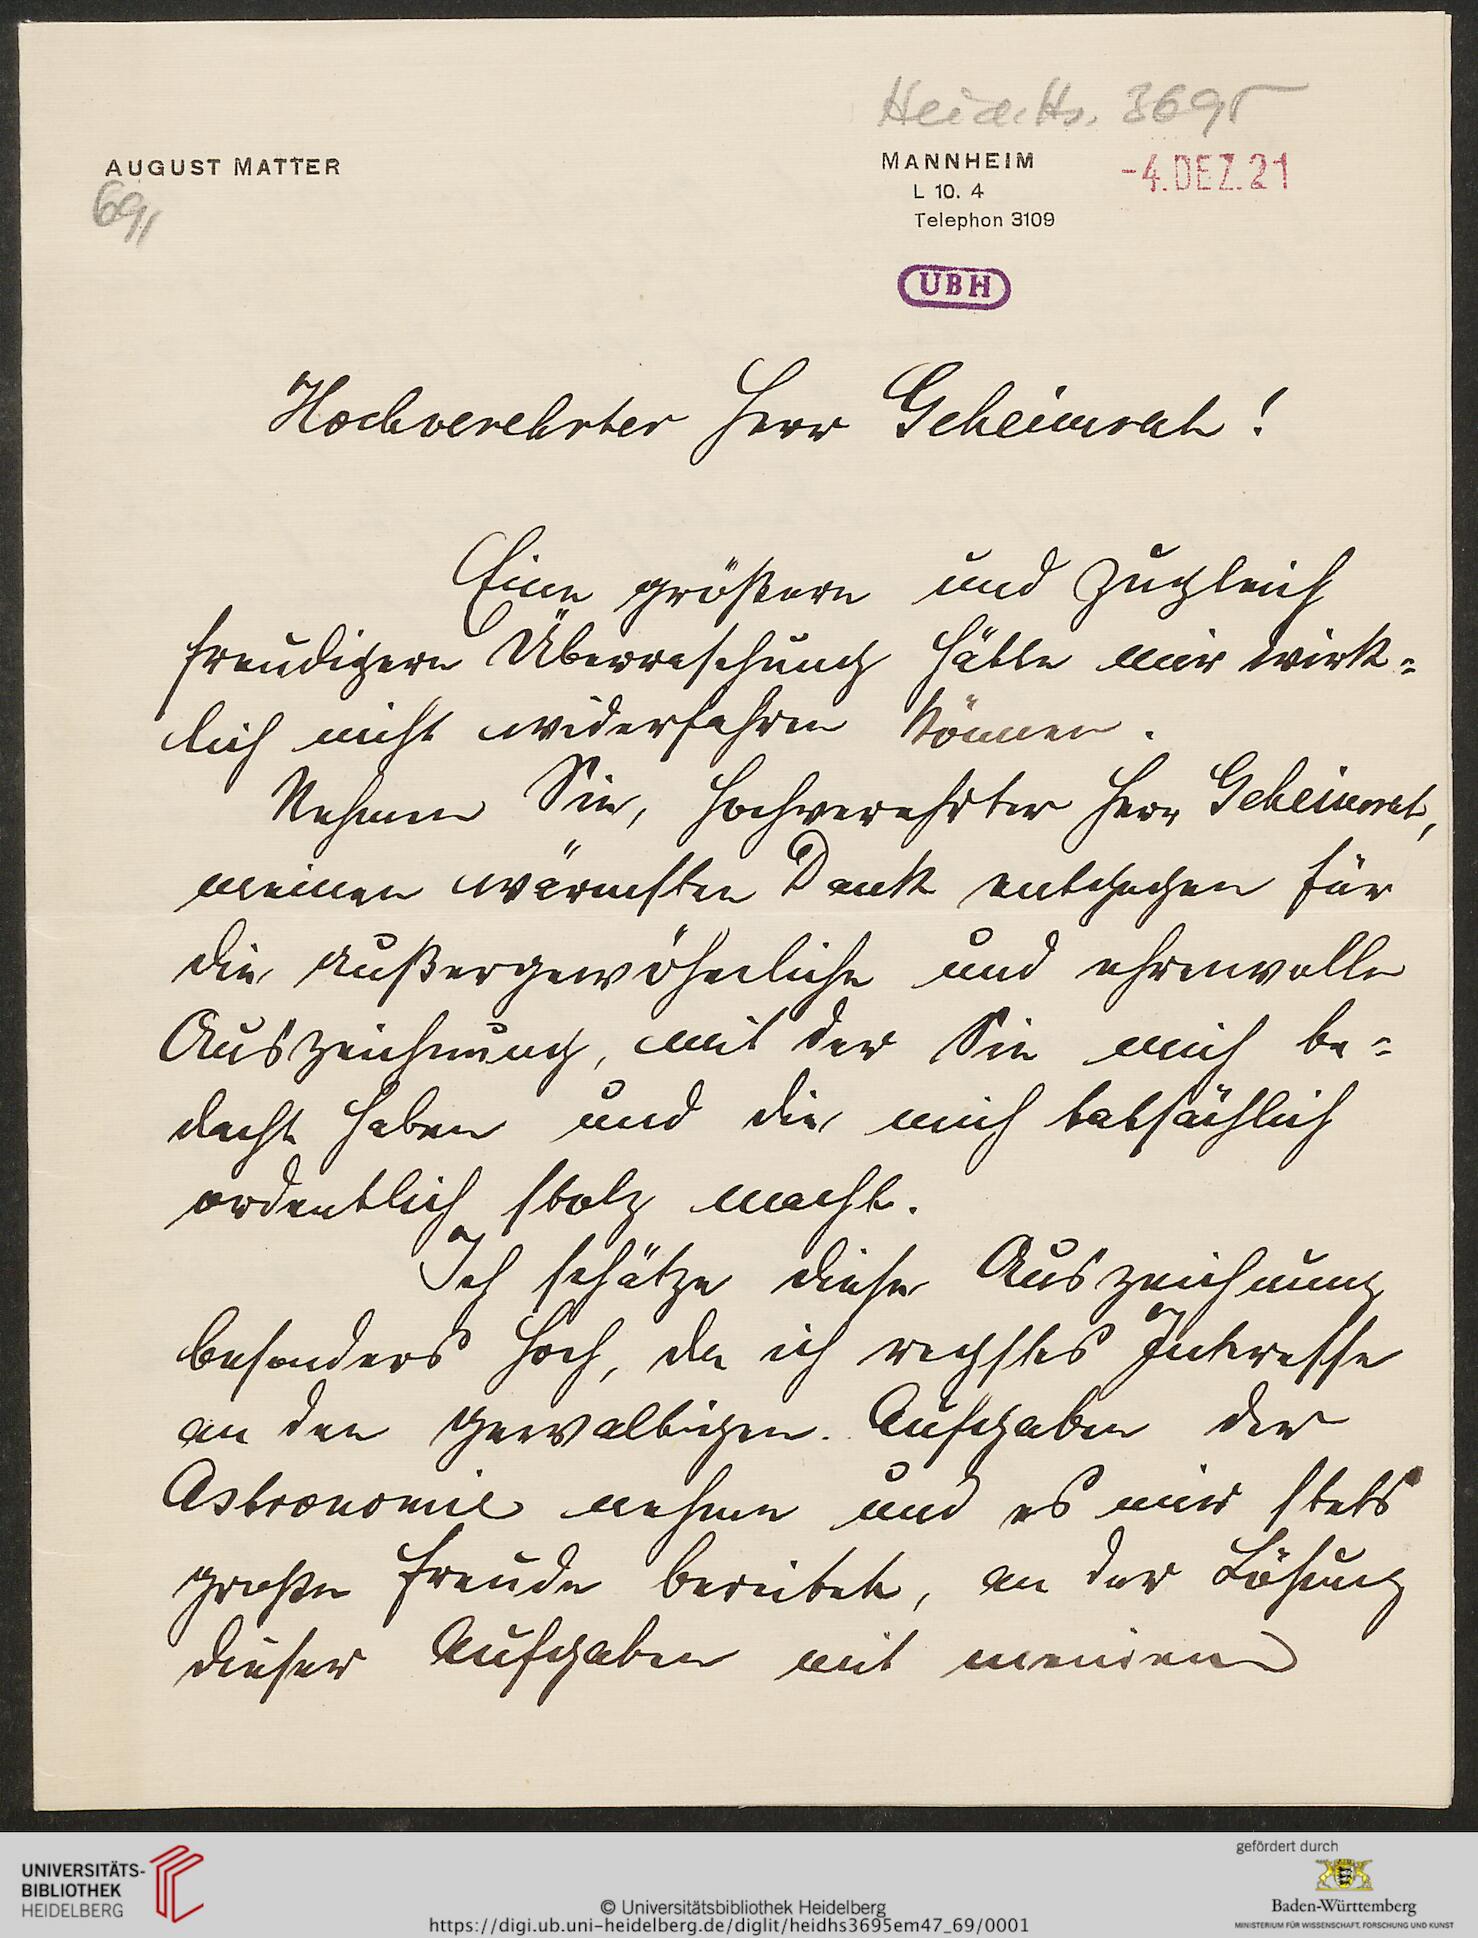 Heid. Hs. 3695
AUGUST MATTER
MANNHEIM
-4. DEZ. 21
L 10. 4
69,
Telephon 3109
UBH
Hochverehrter Herr Geheimrat!
Eine größere und zugleich
freudigere Überraschung hätte mir wirk-
lich nicht widerfahren können.
Nehmen Sie, hochverehrter Herr Geheimrat,
meinen wärmsten Dank entgegen für
die außergewöhnliche und ehrenvolle
Auszeichnung, mit der Sie mich be-
dacht haben und die mich tatsächlich
ordentlich stolz macht.
Ich schätze diese Auszeichnung
besonders hoch, da ich regstes Interesse
an den gewaltigen Aufgaben der
Astronomie nehme und es mir stets
große Freude bereitete, an der Lösung
dieser Aufgaben mit meinen
UNIVERSITÄTS-
BIBLIOTHEK
HEIDELBERG
© Universitätsbibliothek Heidelberg
https://digi.ub.uni-heidelberg.de/diglit/heidhs3695em47_69/0001
gefördert durch
Baden-Württemberg
MINISTERIUM FÜR WISSENSCHAFT, FORSCHUNG UND KUNST